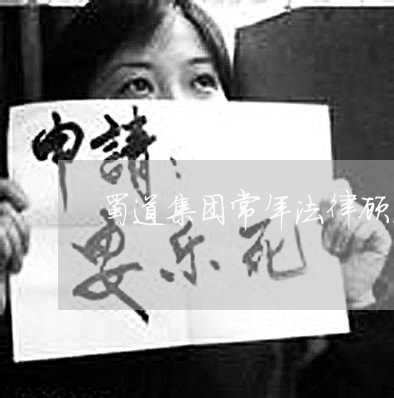 申請：
蜀道集团常年法律顾
要乐死